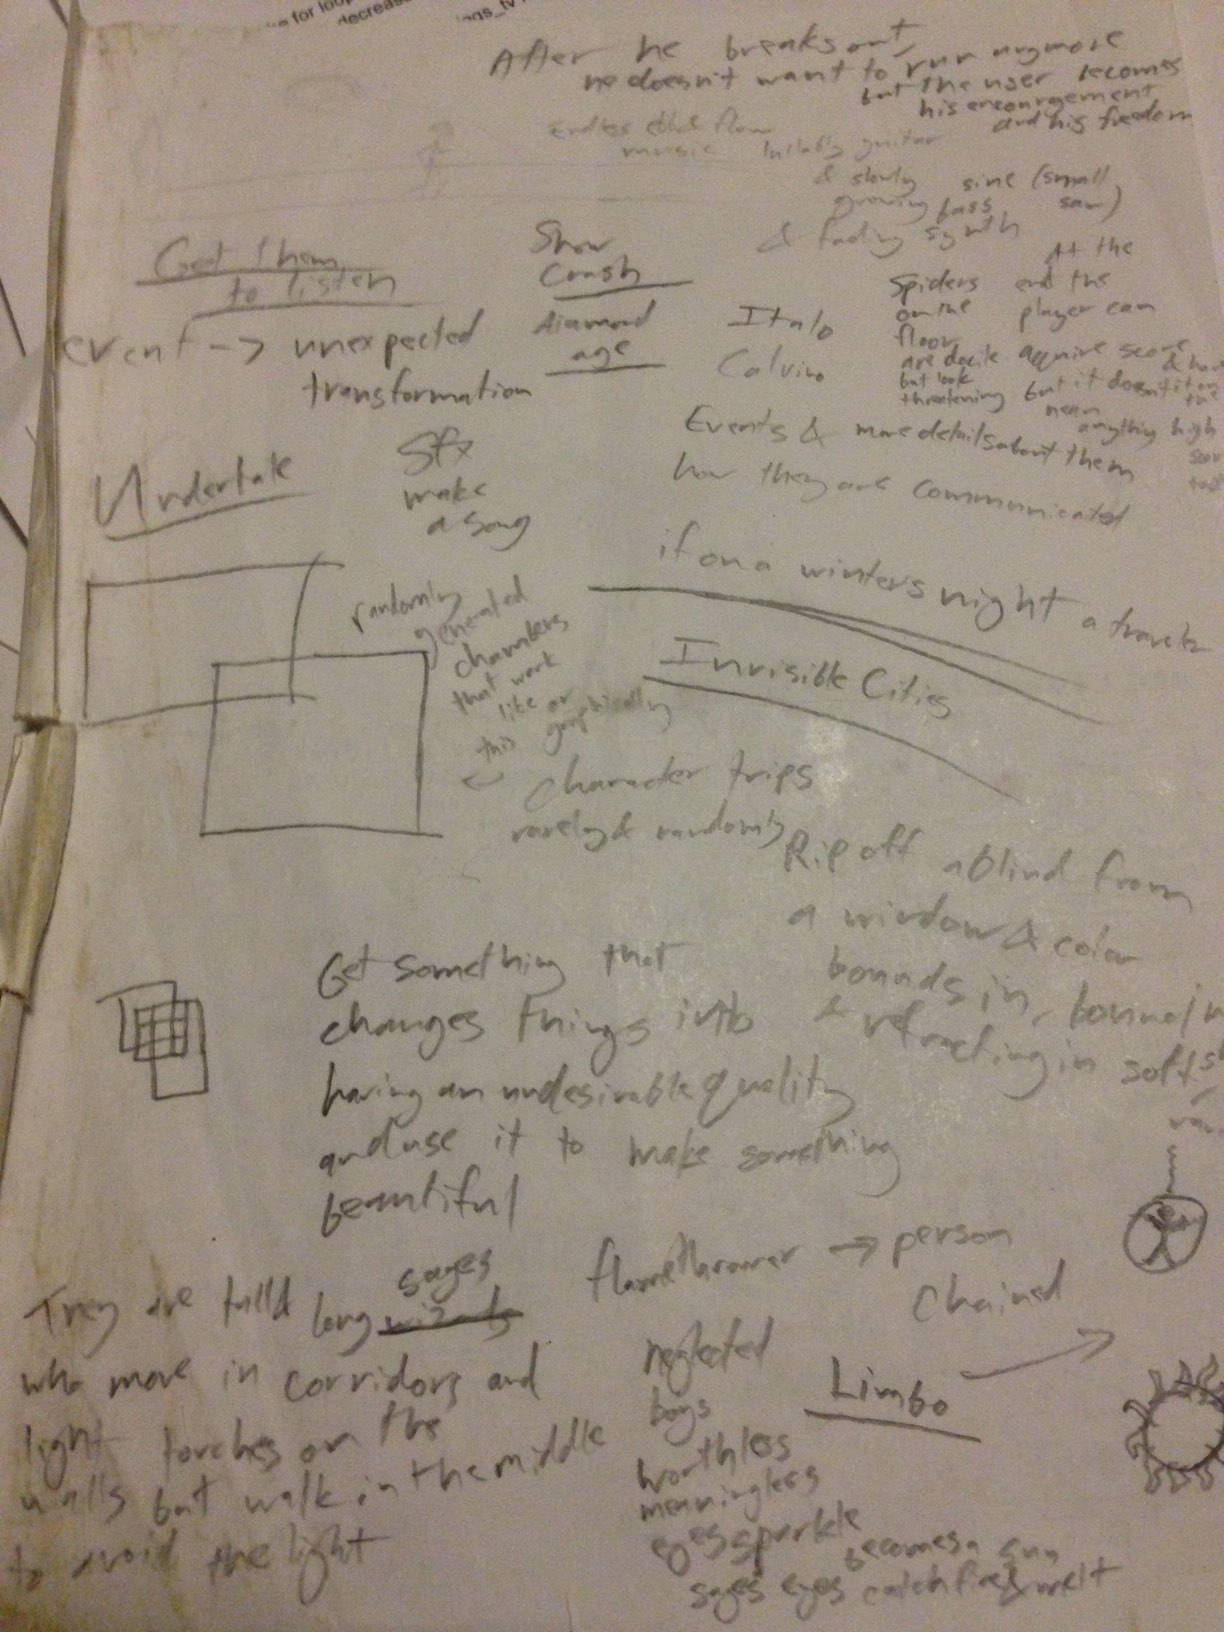 for loop
decrease
After he breaks out,
he doesn't want to run anymore
but the user becomes
his encouragement
and his freedom
Endless flow
music
lullaby guitar
& slowly
growing bass
sine (small
saw)
& fading synth
Get them
to listen
event -> unexpected
transformation
Snow
Crash
diamond
age
Italo
Calvino
Spiders
on the
floor
are docile
but look
threatening
At the
end the
player can
acquire score
but it doesn't
mean
anything
high
Events & more details about them
how they are communicated
Undertale
Sfx
make
a song
if on a winters night a traveler
Invisible Cities
randomly
generated
chambers
that work
like or
this graphically
Character trips
rarely & randomly
Rip off a blind from
a window & color
bounds in,
& refracting in soft
Get something that
changes things into
having an undesirable quality
and use it to make something
beautiful
They are tall &
long wizards sages
who move in corridors and
light torches on the
walls but walk in the middle
to avoid the light
flamethrower -> person
Chained
Limbo
neglected
boys
worthless
meaningless
eyes sparkle
becomes a sun
sages eyes catch fire & melt